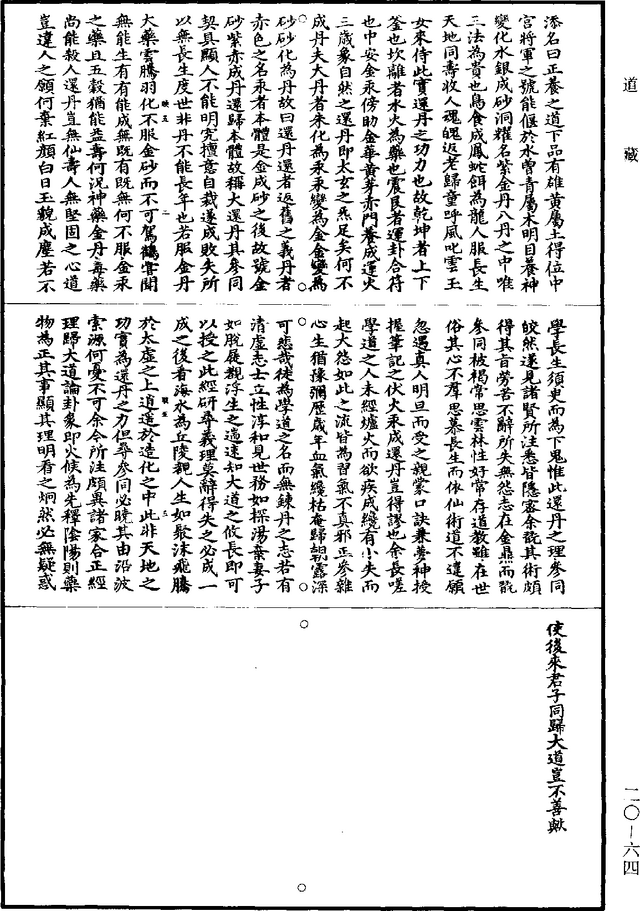 道藏
添名曰正養之道下品有雄黃屬土得位中
宮將軍之號能偃於水曾青屬木明目養神
變化水銀成砂洞耀名紫金丹八丹之中唯
三法為貴也鳥食成鳳蛇餌為龍人服長生
天地同壽收人魂魄返老歸童呼風叱雲玉
女來侍此實還丹之功力也故乾坤者上下
釜也坎離者水火為藥也震艮者運卦合符
也中安金汞傍助金華黃芽赤門養成運火
三歲象自然之還丹即太玄之炁足矣何不
成丹夫大丹者朱化為汞汞變為金金變為
砂砂化為丹故曰還丹還者返舊之義丹者
赤色之名汞者本體是金成砂之後故號金
砂紫赤成丹還歸本體故稱大還丹其參同
契具顯人不能明究擅意自裁遂成敗失所
以無長生度世非丹不能長年也若服金丹
大藥雲騰羽化不服金砂而不可駕鶴嘗聞
無能生有有能成無既有既無何不服金汞
之藥且五穀猶能益壽何況神藥金丹毒藥
尚能殺人還丹豈無仙壽人無堅固之心道
豈違人之願何棄紅顏白日玉貌成塵若不
學長生須臾而為下鬼惟此還丹之理參同
皎然遂見諸賢所注悉皆隱密余翫其術頗
得其旨勞苦不辭所失無怨志在金鼎而翫
參同被褐常思雲林性好常存道教雖在世
俗其心不羣思慕長生而依仙術道不違願
忽遇真人明旦而受之親蒙口訣兼夢神授
握筆記之伏火汞成還丹豈得謬也余長嗟
學道之人未經爐火而欲疾成纔有小失而
起大怨如此之流皆為習氣不真邪正參雜
心生猶豫涸歷歲年血氣纔枯庵歸朝露深
可悲哉徒為學道之名而無鍊丹之志若有
清虛志士立性淳和見世務如探湯棄妻子
如脫屣觀浮生之過速知大道之攸長即可
以授之此經研尋義理莫辭得失之必成一
成之後看海水為丘陵觀人生如聚沫飛騰
於太虛之上逍遙於造化之中此非天地之
功實為還丹之力但尋參同必曉其由沿波
索源何憂不可余今所注頗異諸家合正經
理歸大道論卦象即火候為先釋陰陽則藥
物為正其事顯其理明看之炯然必無疑惑
使後來君子同歸大道豈不善歟
二〇—六四